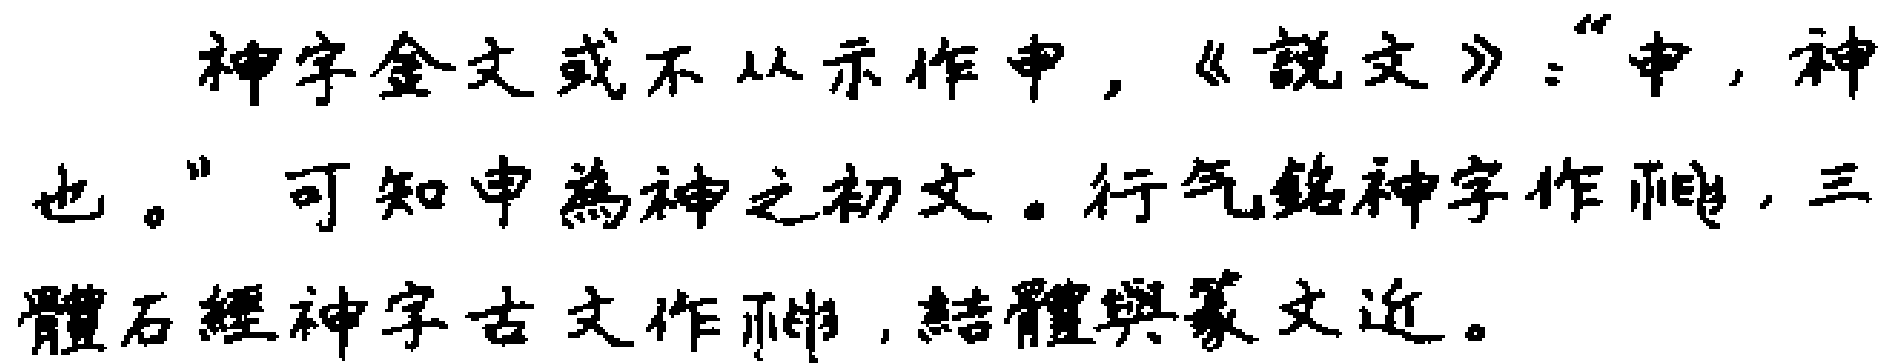 神字金文或不从示作申，《説文》：“申，神
也。”可知申為神之初文。行气銘神字作，三
體石經神字古文作，結體與篆文近。